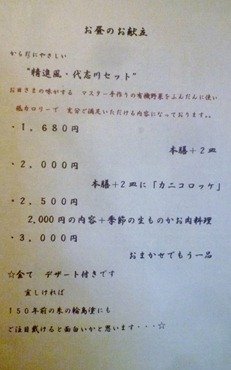 お昼のお献立
からだにやさしい
“精進風・代志川セット”
お日さまの味がする マスター手作りの有機野菜をふんだんに使い
低カロリーで 充分ご満足いただける内容になっております。。
・1,680円
本膳+2皿
・2,000円
本膳+2皿に「カニコロッケ」
・2,500円
2,000円の内容+季節の生ものかお肉料理
・3,000円
おまかせでもう一品
☆全て デザート付きです
宜しければ
150年前の朱の輪島塗にも
ご注目戴けると面白いかと思います・・・☆